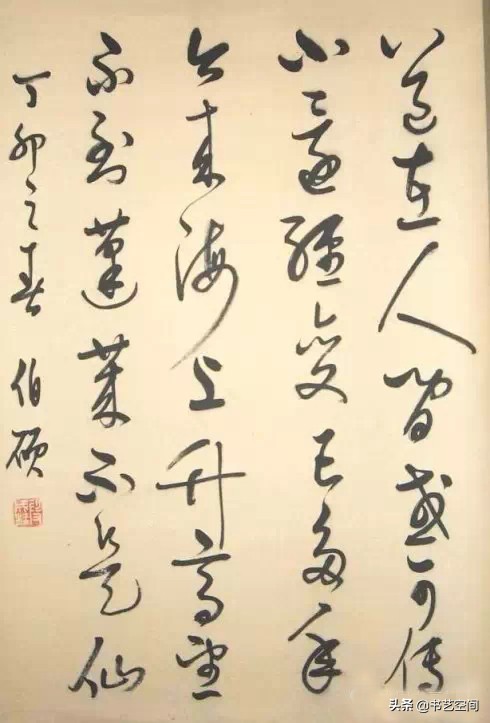 道在人間或可傳
小還輕變已多年
今来海上升高望
不到蓬萊不是仙
丁卯之春 伯碩
头条 @书艺空间